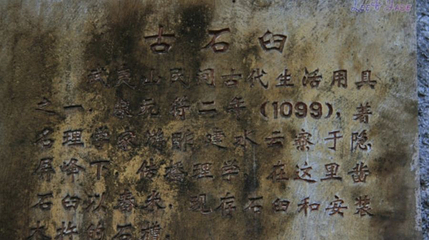 古石臼
武夷山民间古代生活用具
之一，宋元符二年（1099），著
名理学家 建水云寮于隐
屏峰下，传 理学，在这里凿
石臼以舂米，现存石臼和安装
木杵的石